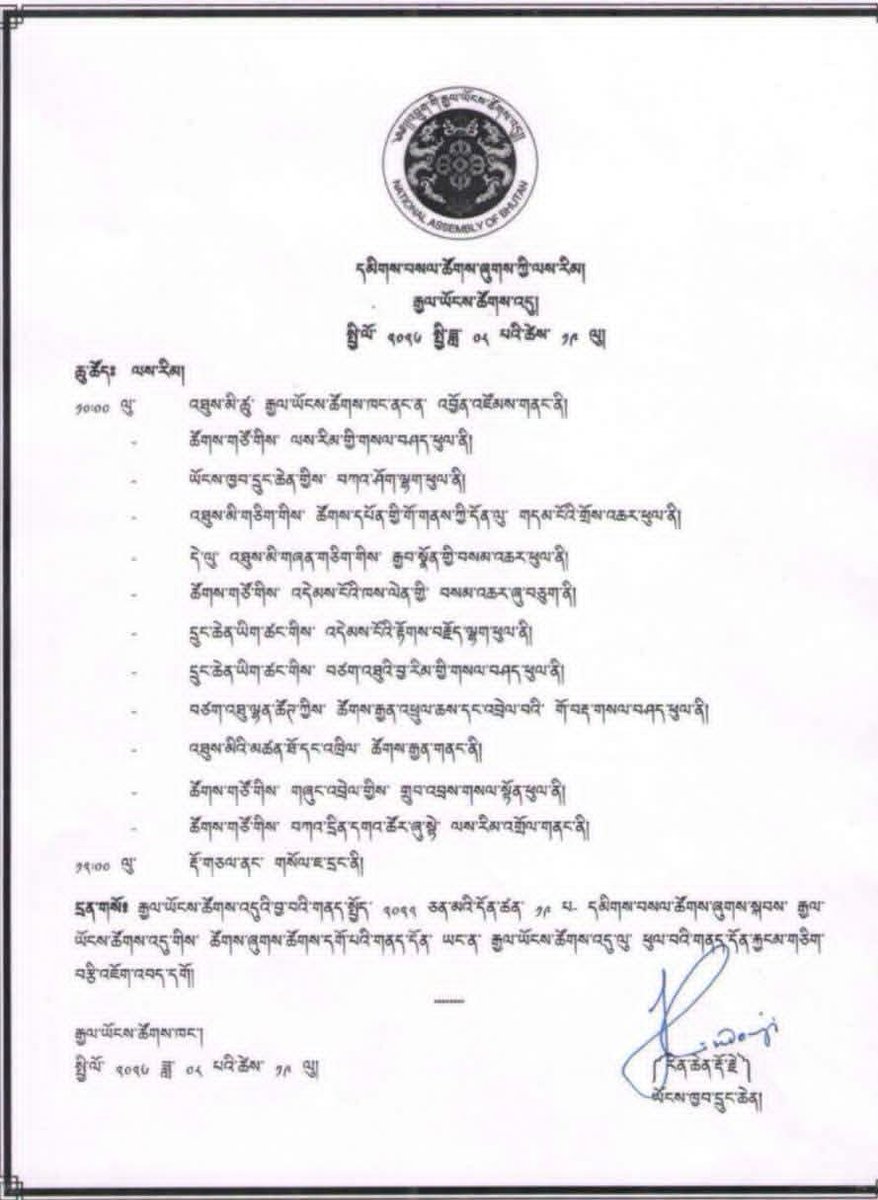 ༄༅།།འབྲུག་གི་རྒྱལ་ཡོངས་ཚོགས་འདུ།།
NATIONAL ASSEMBLY OF BHUTAN
དམིགས་བསལ་ཚོགས་ཞུགས་ཀྱི་ལས་རིམ།
རྒྱལ་ཡོངས་ཚོགས་འདུ།
སྤྱི་ལོ་ ༢༠༢༦ སྤྱི་ཟླ་ ༠༨ པའི་ཚེས་ ༡༩ ལུ།
ཆུ་ཚོད༔ ལས་རིམ།
༡༠:༠༠ ལུ་ འཐུས་མི་ཚུ་ རྒྱལ་ཡོངས་ཚོགས་ཁང་ནང་ན་ འབྱོན་འཛོམས་གནང་ནི།
- ཚོགས་གཙོ་གིས་ ལས་རིམ་གྱི་གསལ་བཤད་ཕུལ་ནི།
- ཡོངས་ཁྱབ་དྲུང་ཆེན་གྱིས་ བཀའ་ཤོག་ལྷག་ཕུལ་ནི།
- འཐུས་མི་གཅིག་གིས་ ཚོགས་དཔོན་གྱི་གོ་གནས་ཀྱི་དོན་ལུ་ གདམ་ངོའི་གྲོས་འཆར་ཕུལ་ནི།
- དེ་ལུ་ འཐུས་མི་གཞན་གཅིག་གིས་ རྒྱབ་སྣོན་གྱི་བསམ་འཆར་ཕུལ་ནི།
- ཚོགས་གཙོ་གིས་ འདེམས་ངོའི་ཁས་ལེན་གྱི་ བསམ་འཆར་ཞུ་བཅུག་ནི།
- དྲུང་ཆེན་ཡིག་ཚང་གིས་ འདེམས་ངོའི་རྟོགས་བརྗོད་ལྷག་ཕུལ་ནི།
- དྲུང་ཆེན་ཡིག་ཚང་གིས་ བཙག་འཐུའི་བྱ་རིམ་གྱི་གསལ་བཤད་ཕུལ་ནི།
- བཙག་འཐུ་ལྷན་ཚོཊ་ཀྱིས་ ཚོགས་རྒྱན་འཕྲུལ་ཆས་དང་འབྲེལ་བའི་ གོ་བརྡ་གསལ་བཤད་ཕུལ་ནི།
- འཐུས་མིའི་མཚན་ཐོ་དང་འཁྲིལ་ ཚོགས་རྒྱན་གནང་ནི།
- ཚོགས་གཙོ་གིས་ གཞུང་འབྲེལ་གྱིས་ གྲུབ་འབྲས་གསལ་སྟོན་ཕུལ་ནི།
- ཚོགས་གཙོ་གིས་ བཀའ་དྲིན་དགའ་ཚོར་ཞུ་སྟེ་ ལས་རིམ་འགྲོལ་གནང་ནི།
༡༢:༠༠ ལུ་ རྡོ་གཅལ་ནང་ གསོལ་ཇ་དྲང་ནི།
དྲན་གསོ༔ རྒྱལ་ཡོངས་ཚོགས་འདུའི་བྱ་བའི་གནད་སྤྱོད་ ༢༠༢༢ ཅན་མའི་དོན་ཚན་ ༡༩ པ- དམིགས་བསལ་ཚོགས་ཞུགས་སྐབས་ རྒྱལ་
ཡོངས་ཚོགས་འདུ་གིས་ ཚོགས་ཞུགས་ཚོགས་དགོ་པའི་གནད་དོན་ ཡང་ན་ རྒྱལ་ཡོངས་ཚོགས་འདུ་ལུ་ ཕུལ་བའི་གནད་དོན་རྐྱངམ་གཅིག་
བརྩི་འཇོག་འབད་དགོ།
རྒྱལ་ཡོངས་ཚོགས་ཁང་།
སྤྱི་ལོ་ ༢༠༢༦ ཟླ་ ༠༨ པའི་ཚེས་ ༡༩ ལུ།
༼རིན་ཆེན་རྡོ་རྗེ༽
ཡོངས་ཁྱབ་དྲུང་ཆེན།